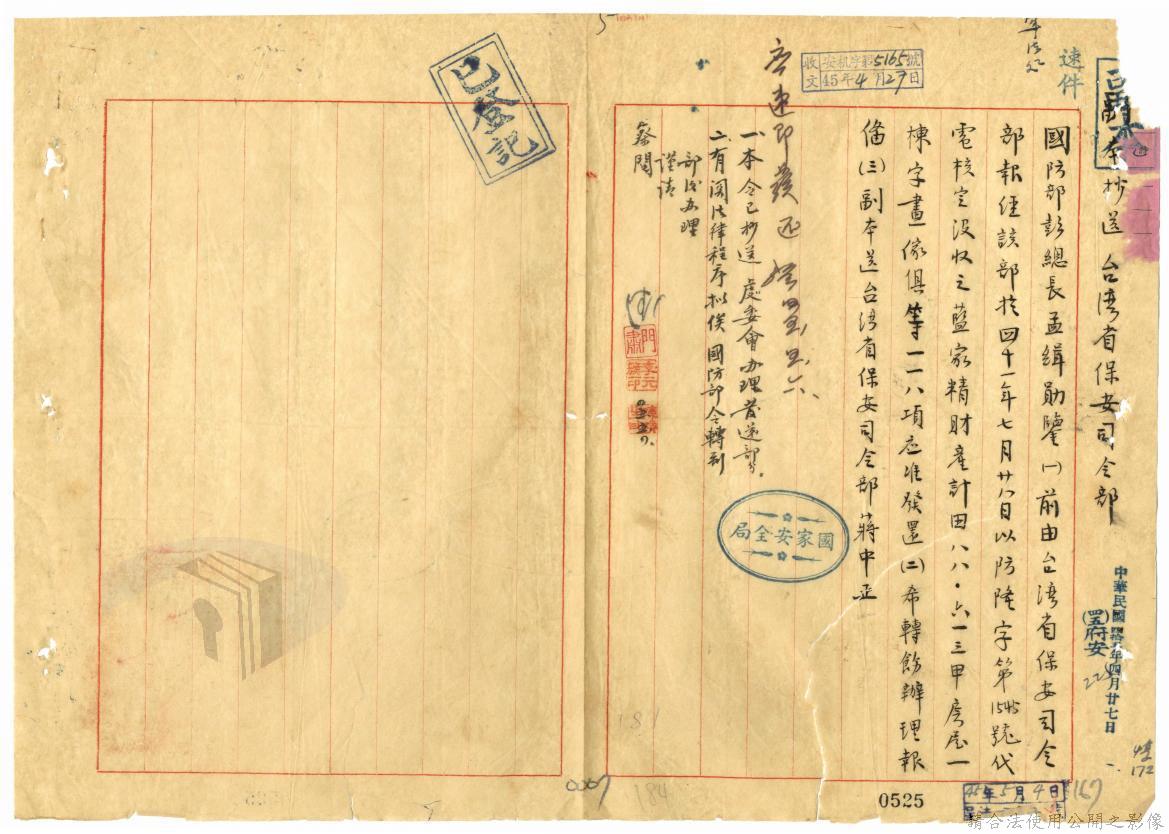 速件
副本抄送台湾省保安司令部
中華民國肆拾五年四月廿七日
府安
國防部彭總長孟緝勛鑒(一)前由台湾省保安司令
部報经該部於四十一年七月廿八日以防隆字第1545號代
電核定没收之藍家精財產計田八八·六一三甲房屋一
棟字畫傢俱等一一八項应准發還(二)希轉飭辦理報
備(三)副本送台湾省保安司令部蔣中正
收文
安机字第5165號
45年4月27日
应速即發还
一、本令已抄送處委會办理發還部分。
二、有関法律程序拟俟國防部令轉到
部後办理
謹請
蔡閱
已登記
國家安全局
0525
45年5月4日
167
172
0067
184
請合法使用公開之影像